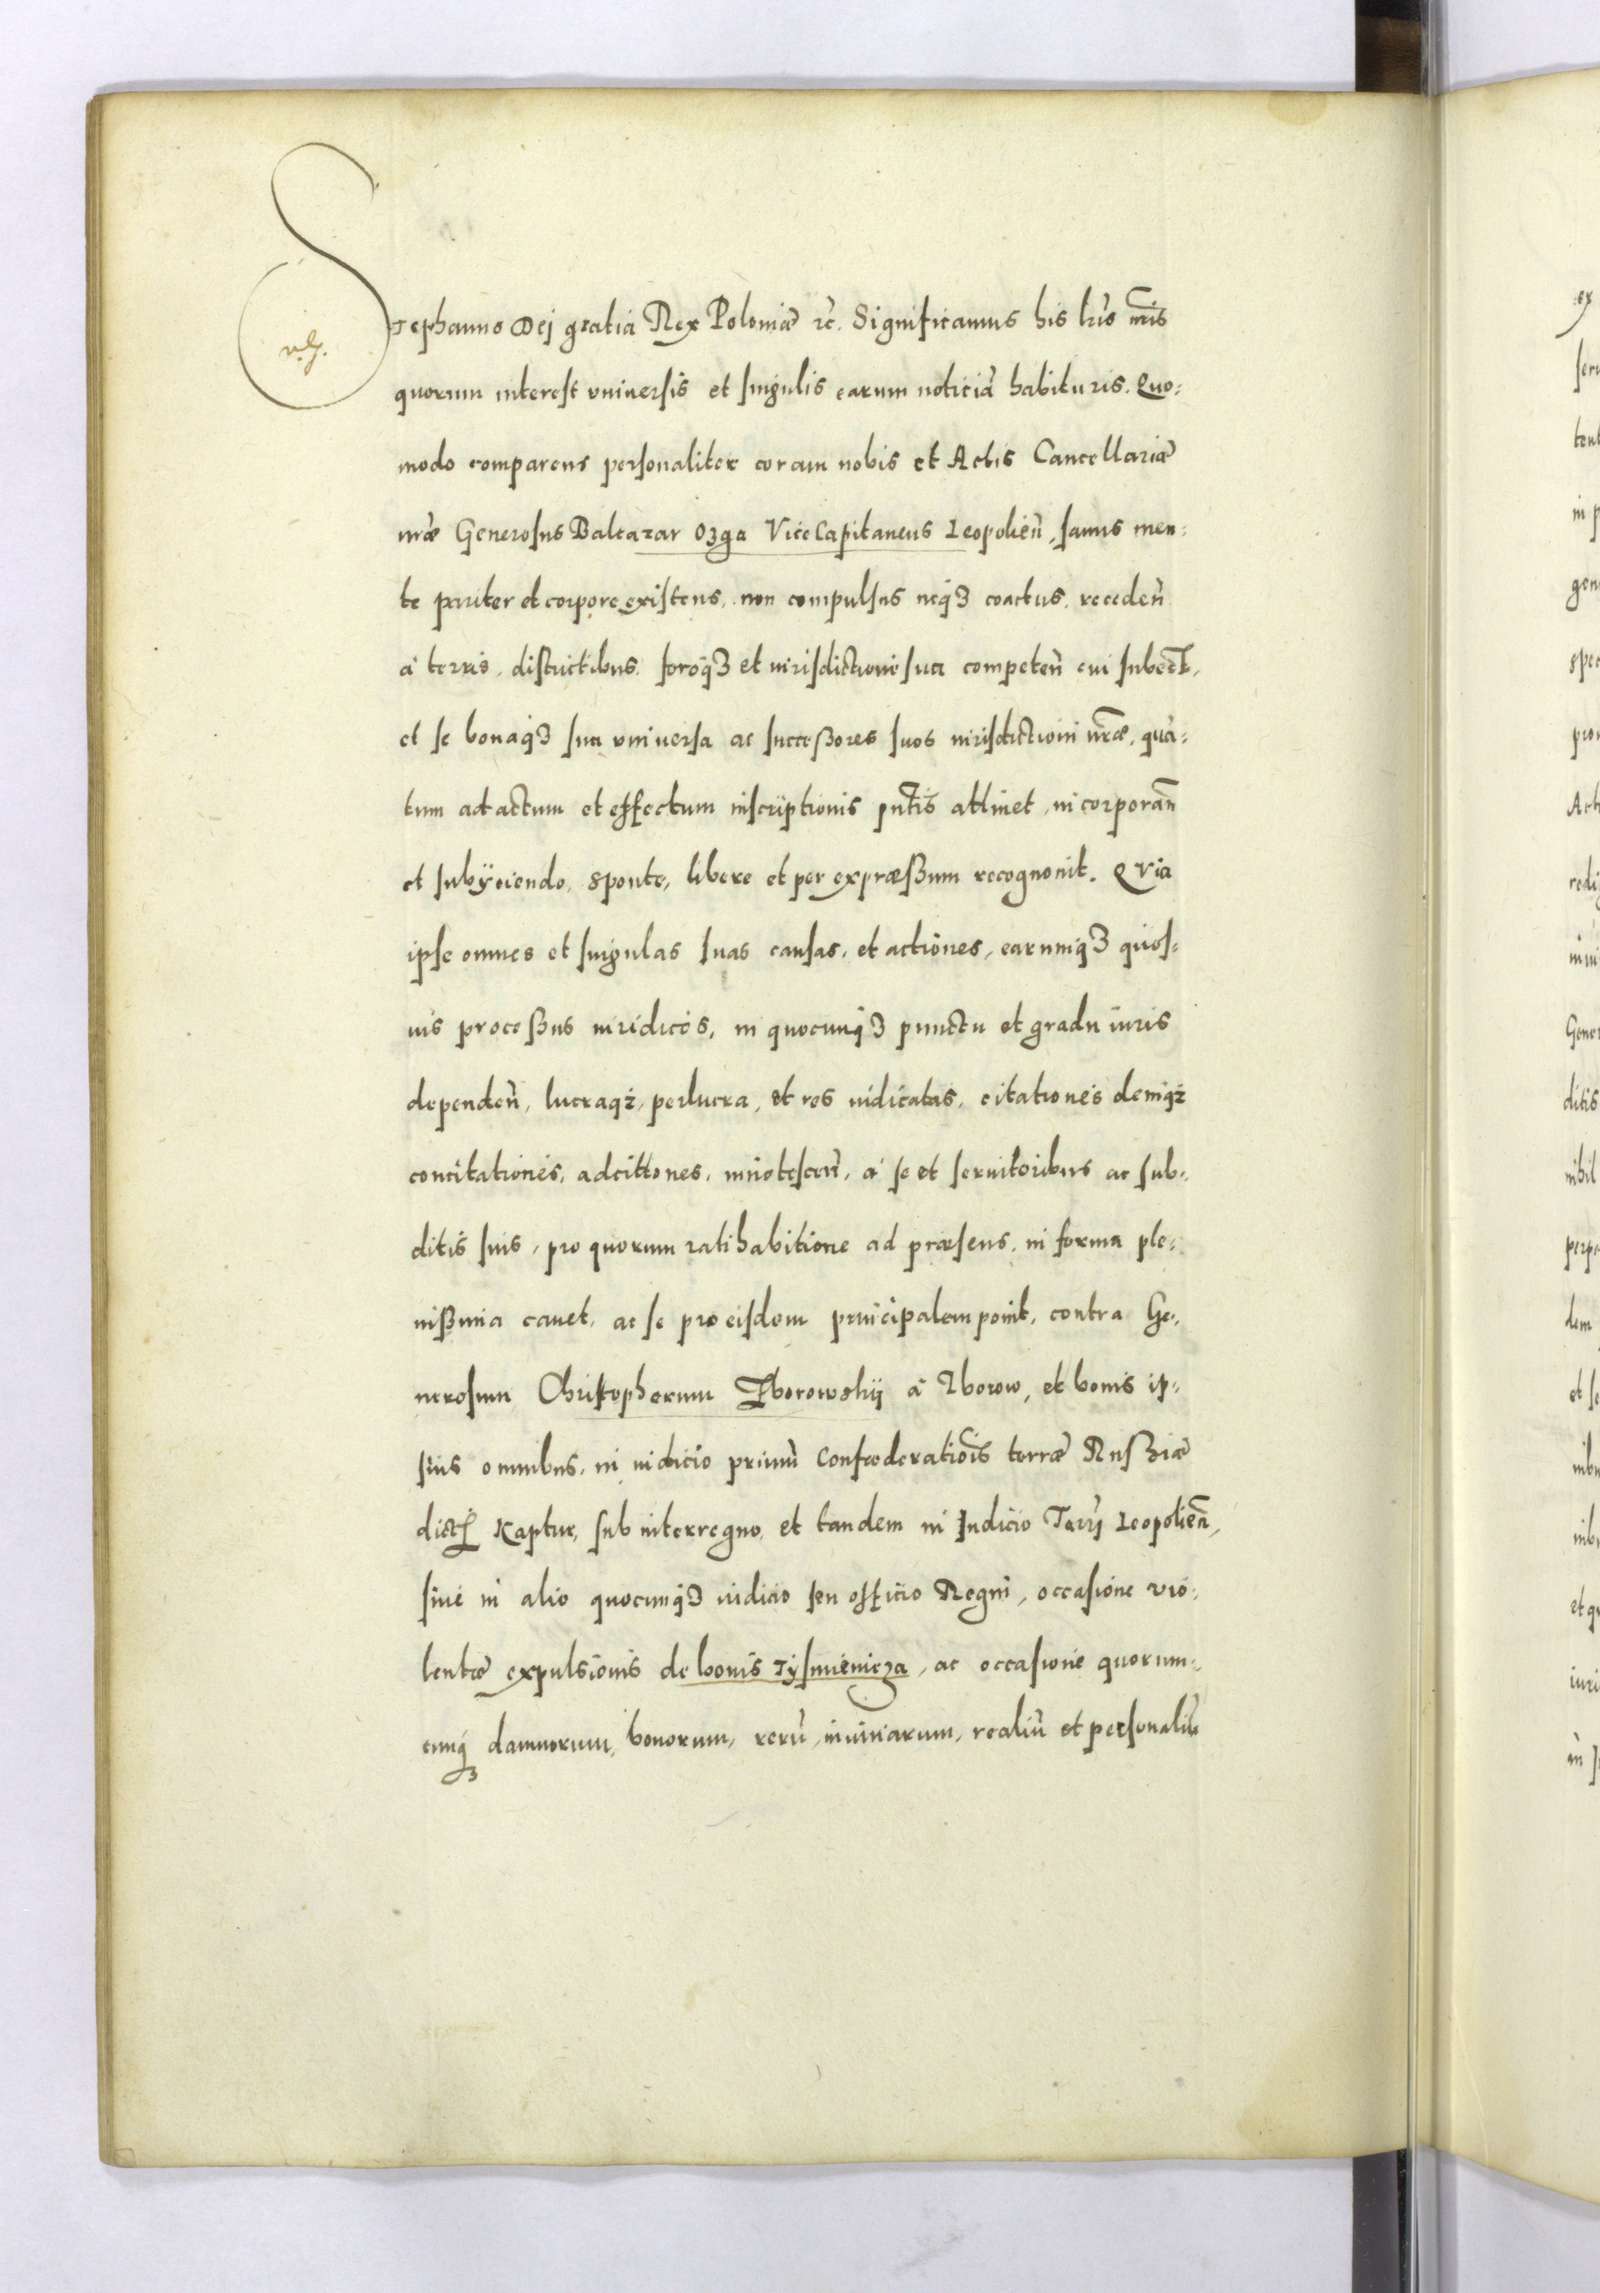 Stephanus Dej gratia Rex Poloniæ rc̃. Significamus his lr̃is nr̃is
quorum interest vniuersis et singulis earum noticiã habituris. Quo:
modo comparens personaliter coram nobis et Actis Cancellariæ
nr̃æ Generosus Baltazar Ozga ViceCapitaneus Leopolieñ, sanus men:
te pariter et corpore existens, non compulsus neqꝫ coactus, recedeñ
à terris, districtibus, foroqꝫ et iurisdictione sua competeñ cui subect̃,
et se bonaqꝫ sua vniuersa ac successores suos iurisdictioni nr̃æ, quã:
tum ad actum et effectum inscriptionis pñtis attinet, incorporañ
et subÿciendo, sponte, libere et per expræssum recognouit. Quia
ipse omnes et singulas suas causas, et actiones, earumqꝫ quos:
uis processus iuridicos, in quocunqꝫ punctu et gradu iuris
dependeñ, lucraqꝫ, perlucra, et res iudicatas, citationes deniqꝫ
concitationes, adcitiones, innotesceñ, à se et seruitoribus ac sub:
ditis suis, pro quorum ratihabitione ad præsens, in forma ple:
nissima cauet, ac se pro eisdem principalem ponit, contra Ge:
nerosum Christopherum Zborowskij à Zborow, et bonis ip:
sius omnibus, in iudicio primũ Confœderationis terræ Russiæ
dict. Kaptur, sub interregno, et tandem in Iudicio Terrj Leopolieñ,
siue in alio quocunqꝫ iudicio seu officio Regni, occasione vio:
lentæ expulsionis de bonis Tysmienicza, ac occasione quorum:
cunqꝫ damnorum, bonorum, rerũ, iniuriarum, realiũ et personaliũ